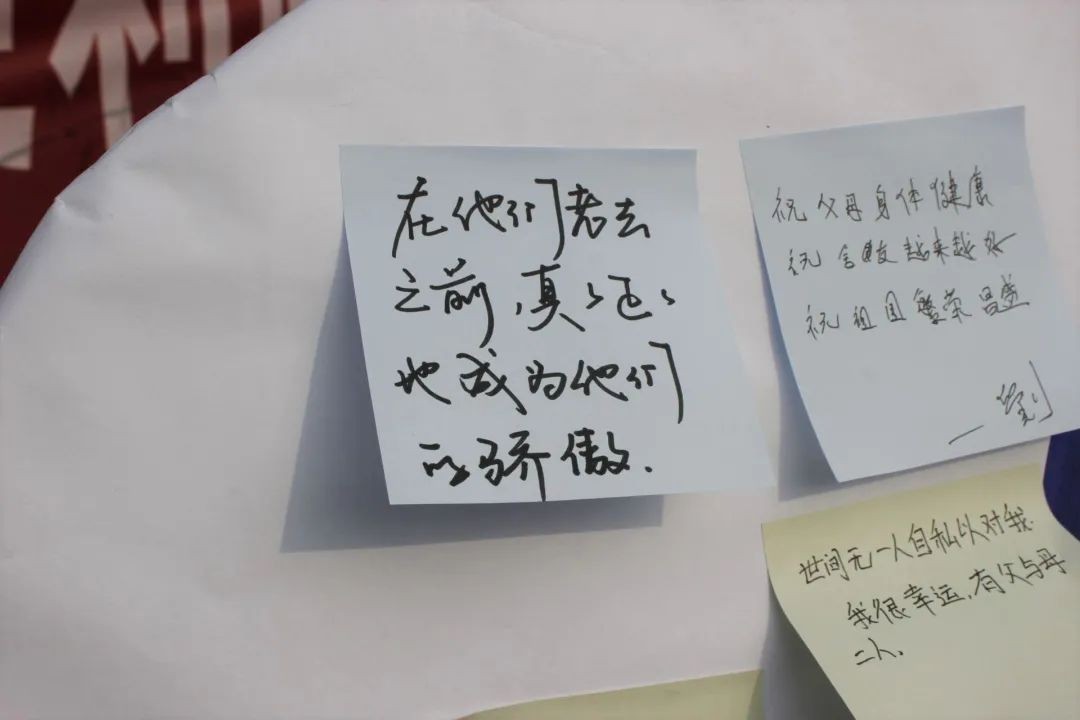 在他们老去
之前,真真正正
地成为他们
的骄傲.
祝父母身体健康
祝舍友越来越好
祝祖国繁荣昌盛
一刘
世间无一人自私以对我.
我很幸运,有父与母
二人.